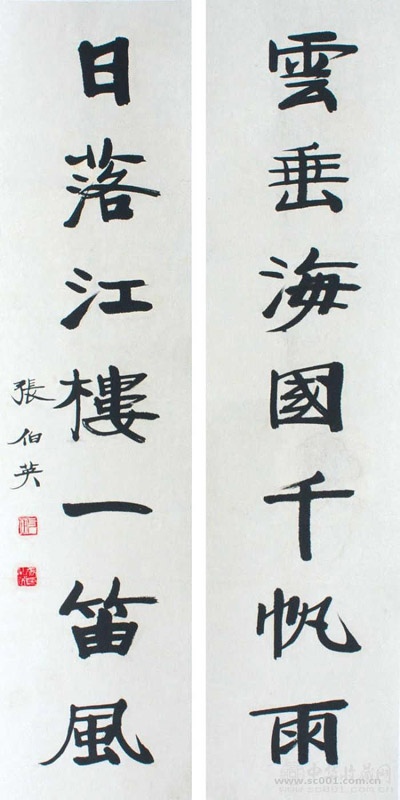 雲垂海國千帆雨
日落江樓一笛風
張伯英
www.sc001.com.cn